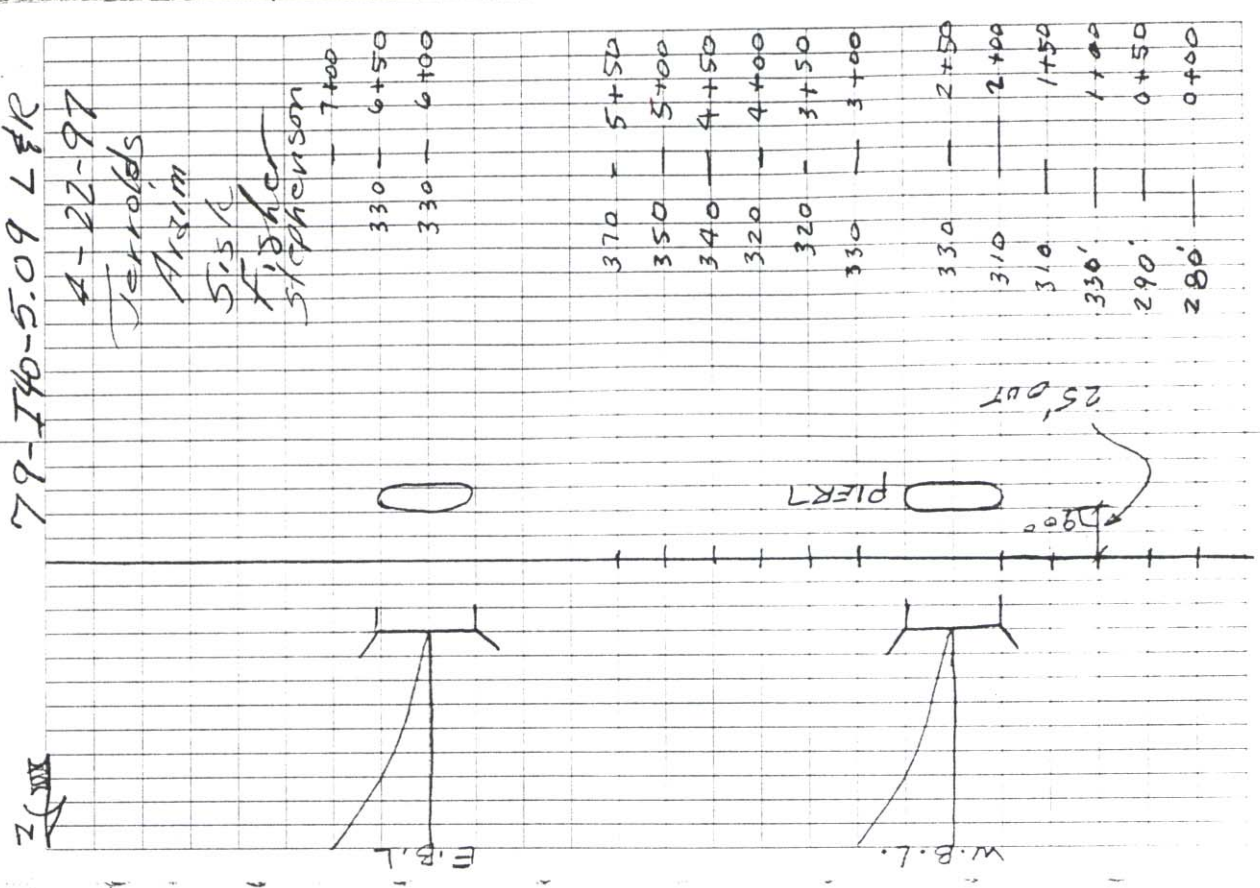 79-I40-5.09 L&R
4-22-97
Jerrolds
Sisk
Fisher
Stephenson
— 7+00
330 — 6+50
330 — 6+00
370 — 5+50
350 — 5+00
340 — 4+50
320 — 4+00
320 - 3+50
330 — 3+00
330 — 2+50
310 — 2+00
310 — 1+50
330' — 1+00
290' — 0+50
280' — 0+00
25' OUT
90°
PIER 7
E.B.L
W.B.L.
N